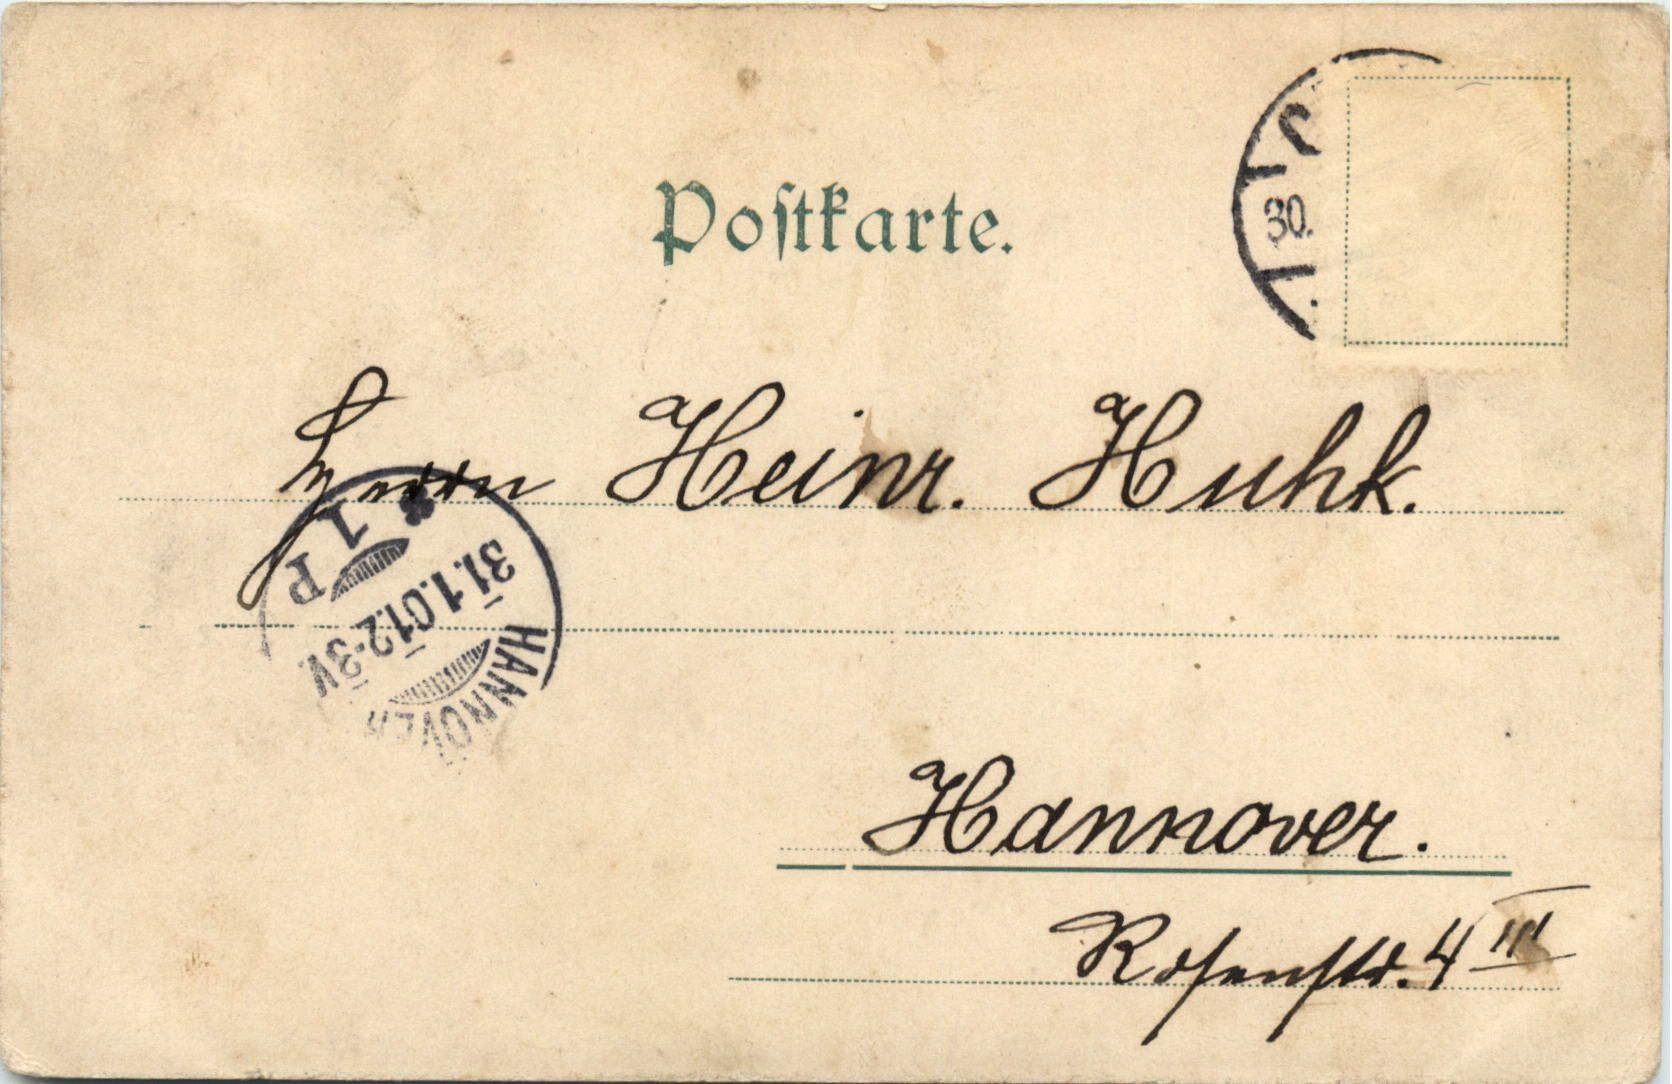 Postkarte.
30.
Herrn Heinr. Huhk.
1 P
31.1.01.2-3V.
HANNOVER
Hannover.
Rosenstr. 4 III